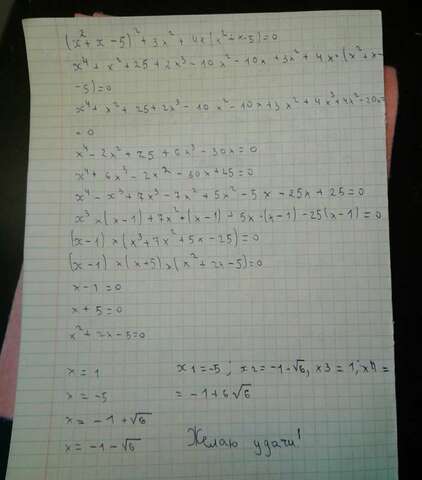 (x² + x - 5)² + 3x² + 4x(x² + x - 5) = 0
x⁴ + x² + 25 + 2x³ - 10x² - 10x + 3x² + 4x · (x² + x -
-5) = 0
x⁴ + x² + 25 + 2x³ - 10x² - 10x + 3x² + 4x³ + 4x² - 20x =
= 0
x⁴ - 2x² + 25 + 6x³ - 30x = 0
x⁴ + 6x³ - 2x² - 30x + 25 = 0
x⁴ - x³ + 7x³ - 7x² + 5x² - 5x - 25x + 25 = 0
x³ × (x - 1) + 7x² × (x - 1) + 5x × (x - 1) - 25(x - 1) = 0
(x - 1) × (x³ + 7x² + 5x - 25) = 0
(x - 1) × (x + 5) × (x² + 2x - 5) = 0
x - 1 = 0
x + 5 = 0
x² + 2x - 5 = 0
x = 1
x = -5
x = -1 + √6
x = -1 - √6
x1 = -5 ; x2 = -1 - √6, x3 = 1, x4 =
= -1 + 6√6
Желаю удачи!